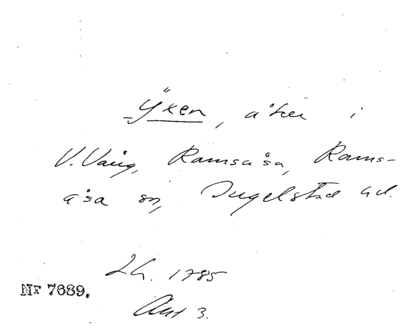 Yxen, åker i
V. Vång, Ramsåsa, Rams-
åsa sn, Ingelstad hd.
LA. 1785
Akt 3.
Nr 7689.